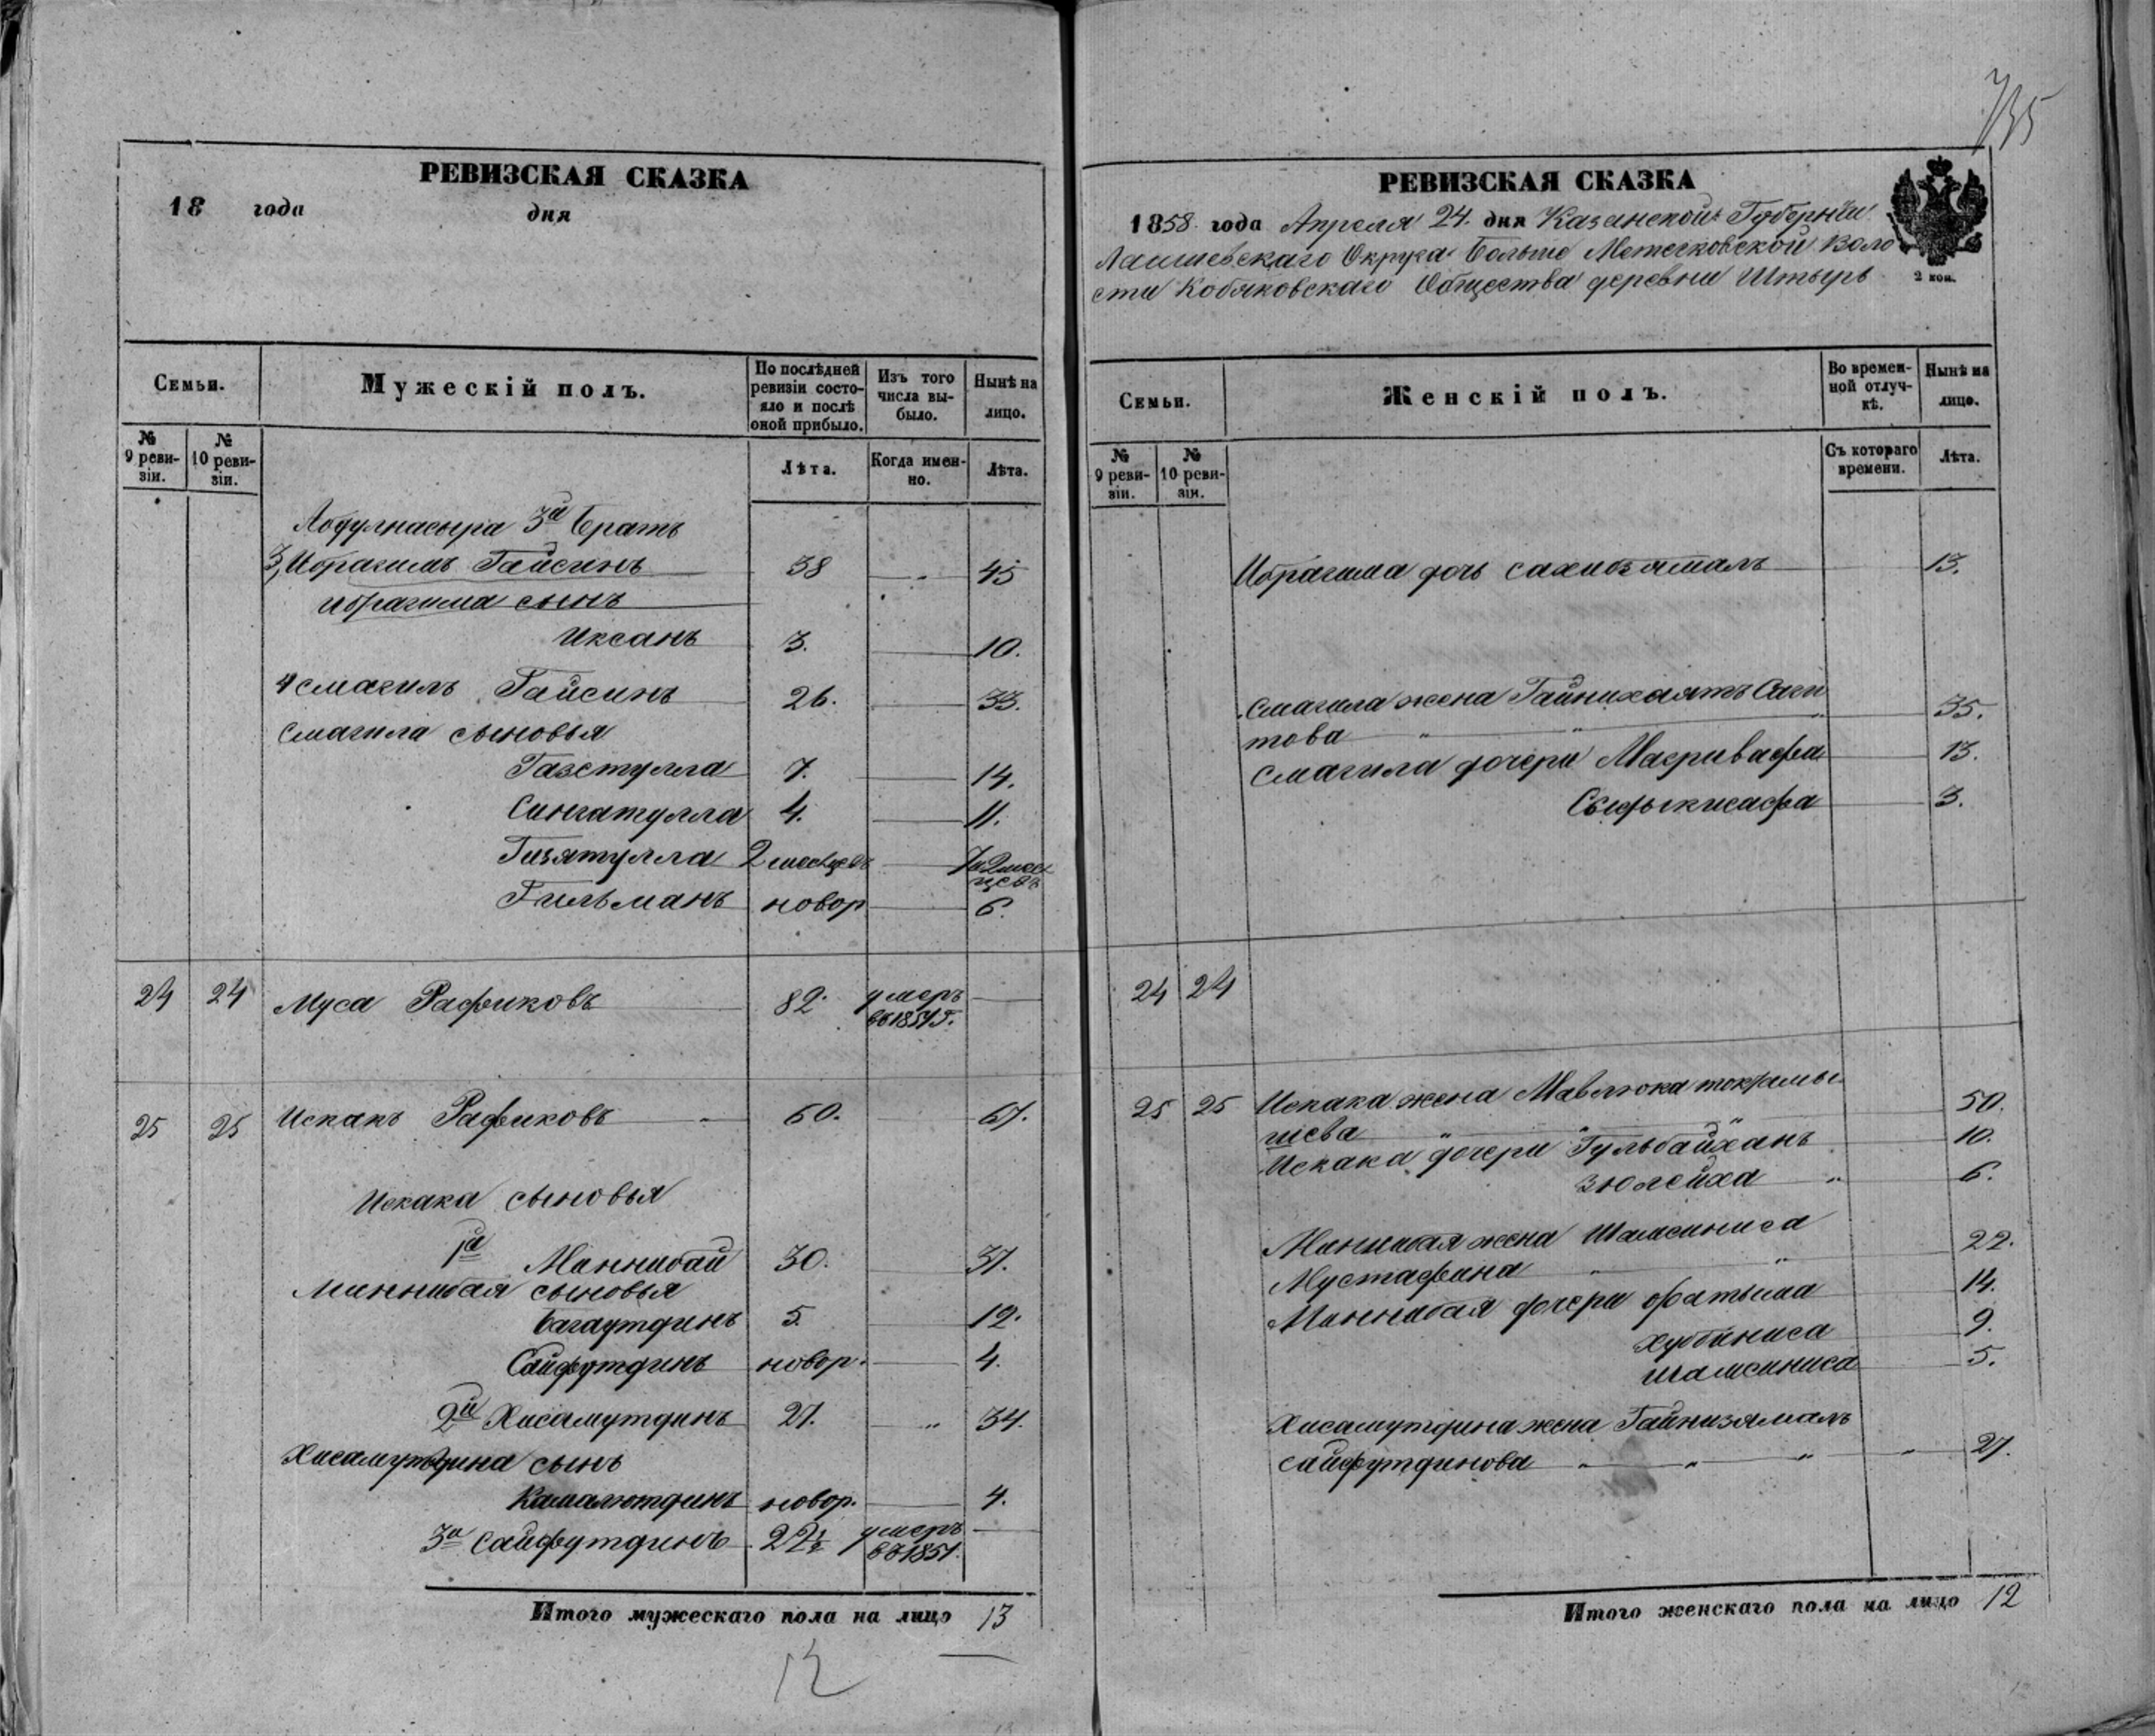 РЕВИЗСКАЯ СКАЗКА
18 года дня
Семьи.
Мужескій полъ.
По послѣдней ревизіи состояло и послѣ оной прибыло.
Изъ того числа выбыло.
Нынѣ на лицо.
№ 9 ревизіи.
№ 10 ревизіи.
Лѣта.
Когда именно.
Лѣта.
Абдулнасыра 3й братъ
3, Ибрагимъ Гайсинъ 38 45
Ибрагима сынъ
Иксанъ 3. 10.
4 Смагилъ Гайсинъ 26. 33.
Смагила сыновья
Газетулла 7. 14.
Сингатулла 4. 11.
Гизятулла 2 месяцовъ 7 и 2 месяцовъ
Гильманъ новор 6.
24 24 Муса Рафиковъ 82. умеръ въ 1851 г.
25 25 Искакъ Рафиковъ 60. 67.
Искака сыновья
1й Миннибай 30. 37.
Миннибая сыновья
Багаутдинъ 5. 12.
Сайфутдинъ новор. 4.
2й Хисамутдинъ 27. 34.
Хисамутдина сынъ
Камалютдинъ новор. 4.
3й Сайфутдинъ 22½ умеръ въ 1851.
Итого мужескаго пола на лицо 13
12
735
РЕВИЗСКАЯ СКАЗКА
1858 года Апреля 24. дня Казанской Губерніи
Лаишевскаго Округа Больше Метесковской Воло
сти Кобяковскаго Общества деревни Штырь
2 коп.
Семьи.
Женскій полъ.
Во временной отлучкѣ.
Нынѣ на лицо.
№ 9 ревизіи.
№ 10 ревизіи.
Съ котораго времени.
Лѣта.
Ибрагима дочь Сахибзямалъ 13.
Смагила жена Гайнихаятъ Саги
това 35.
Смагила дочери Магривафа 13.
3.
24 24
25 25 Искака жена Мавлюка
50.
Искака дочери Гульбайханъ 10.
Зюлейха 6.
Миннибая жена Шамсиниса
Мустафина 22.
Миннибая дочери Фатыма 14.
Хубиниса 9.
Шамсиниса 5.
Хисамутдина жена Гайнизямалъ
Сайфутдинова 27.
Итого женскаго пола на лицо 12